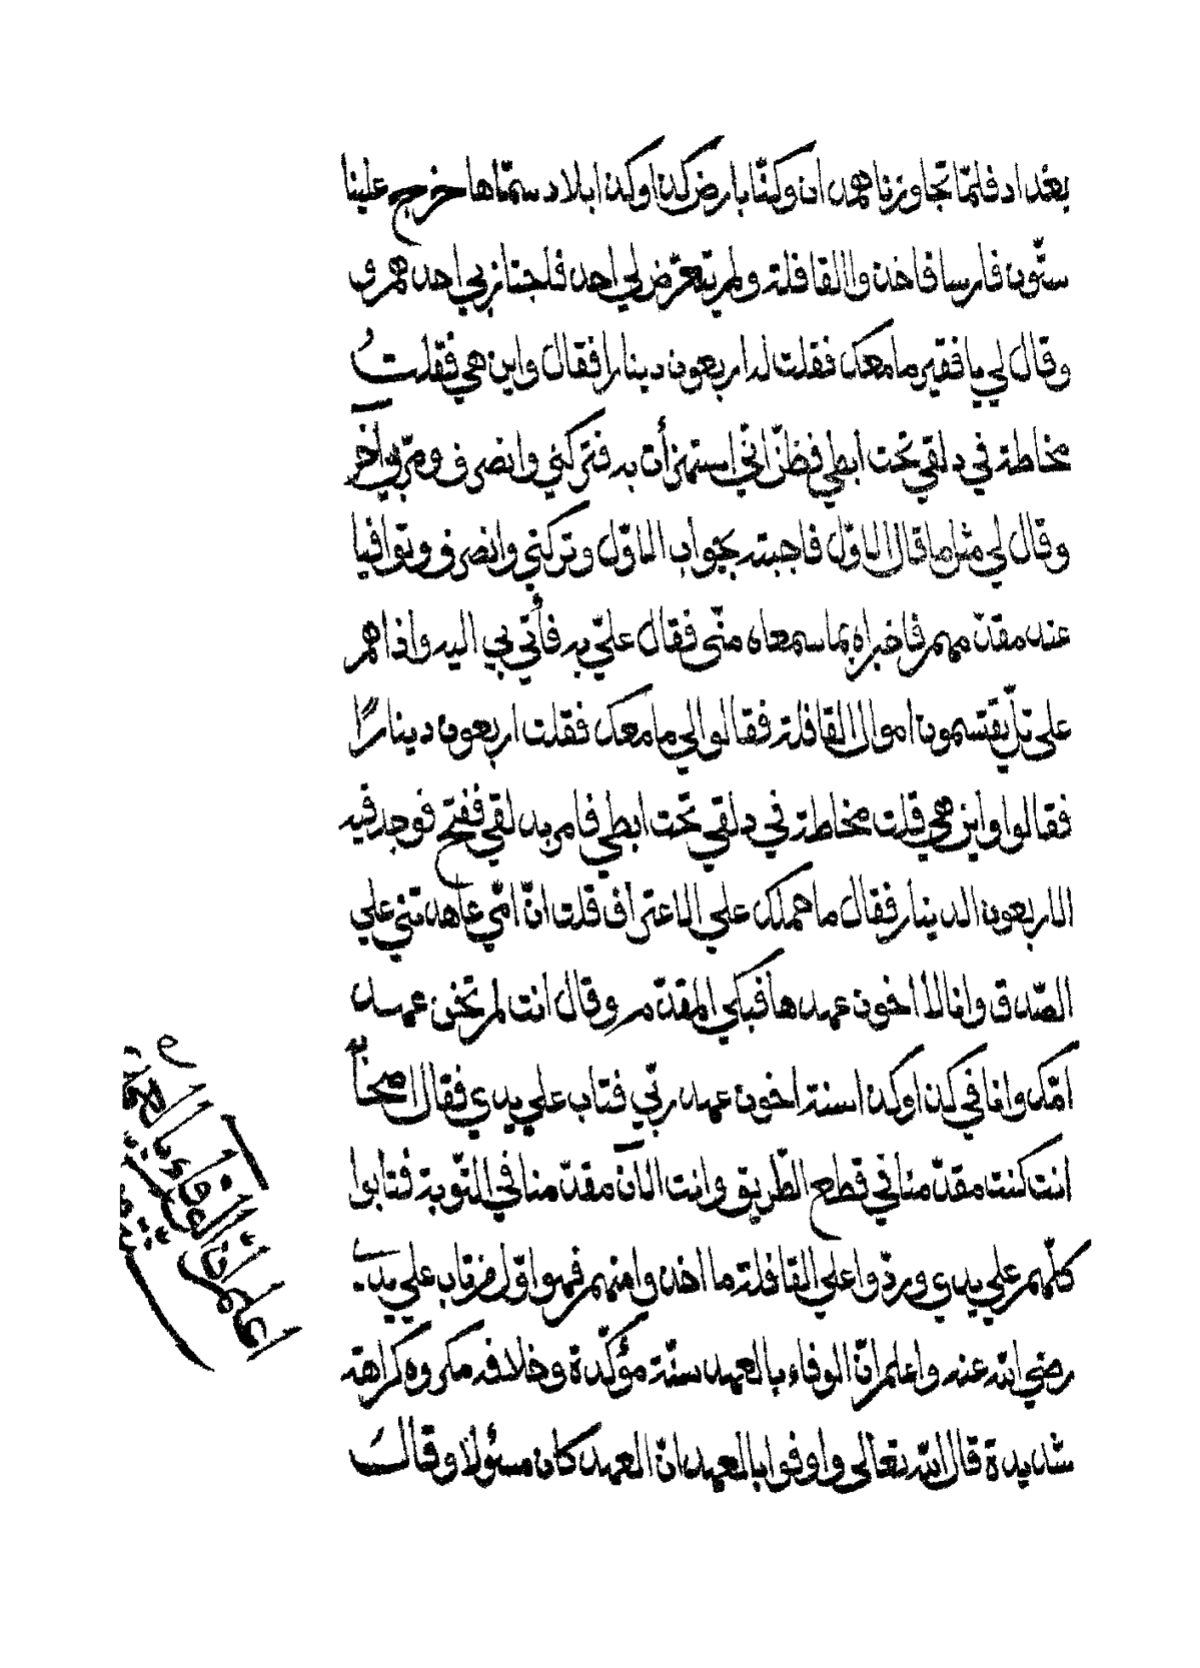 بغداد فلمّا تجاوزنا همدان وكنّا بارض كذا وكذا ببلاد سمّاها خرج علينا
ستّون فارسا فاخذوا القافلة ولم يتعرّض لي احد فاجتاز بي احدهم و
وقال لي يا فقير ما معك فقلت له اربعون دينارا فقال واين هي فقلتُ
مخاطة في دلقي تحت ابطي فظنّ انّي استهزأن به فتركني وانصرف ومرّ بي آخر
وقال لي مثل ما قال الاوّل فاجبته بجواب الاوّل وتركني وانصرف وتوافيا
عند مقدّمهم فاخبراه بما سمعاه منّي فقال عليّ به فأتي بي اليه واذا هم
على تلّ يقتسمون اموال القافلة فقالوا لي ما معك فقلت اربعون دينارًا
فقالوا واين هي قلت مخاطة في دلقي تحت ابطي فامر بدلقي ففتح فوجد فيه
الاربعون الدينار فقال ما حملك علي الاعتراف قلت انّ امّي عاهدتني علي
الصّدق وانا لا اخون عهدها فبكي المقدّم وقال انت لم تخن عهد
امّك وانا في كذا وكذا سنة اخون عهد ربّي فتاب علي يدي فقال اصحابه
انت كنت مقدّمنا في قطع الطّريق وانت الآن مقدّمنا في التّوبة فتابوا
كلّهم علي يدي وردّوا علي القافلة ما اخذوا منهم فهو اوّل من تاب علي يدي
رضي الله عنه واعلم انّ الوفاء بالعهد سنّة مؤكّدة وخلافه مكروه كراهة
شديدة قال الله تعالى واوفوا بالعهد انّ العهد كان مسئولا وقال
اعلم انّ الوفاء بالعهد